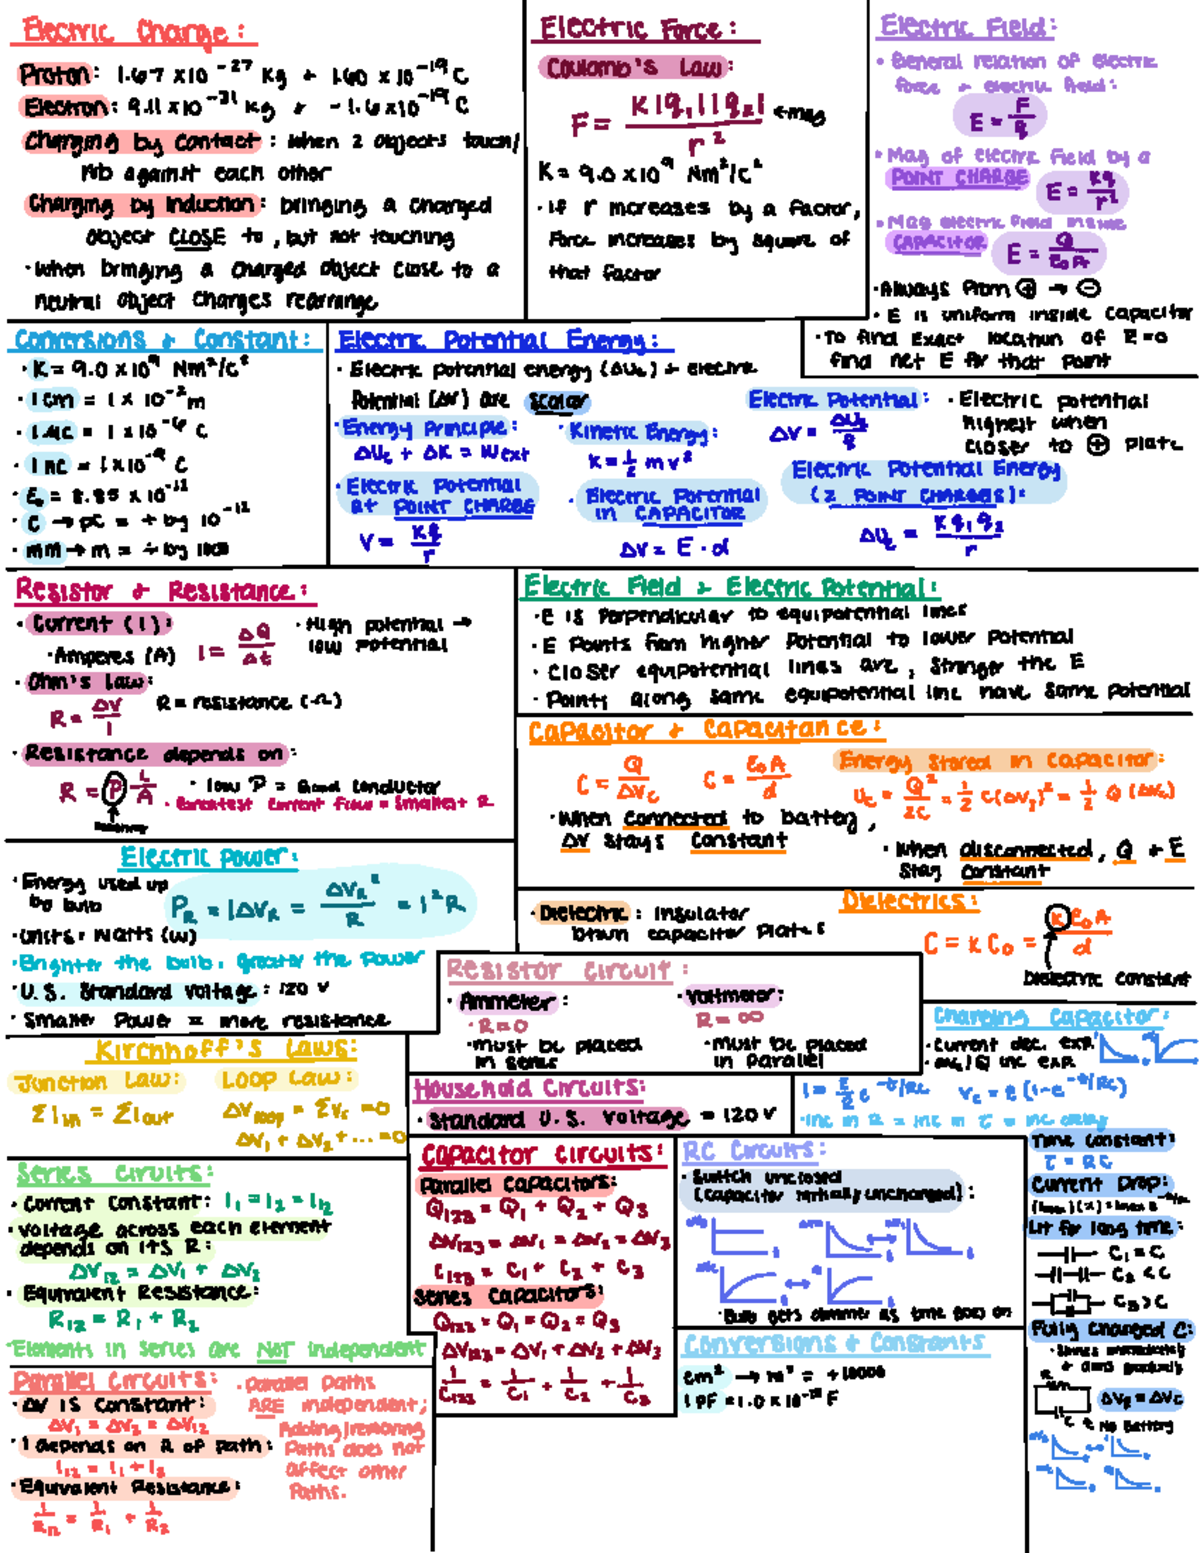 Electric Charge:
Proton: 1.67 x10^-27 Kg + 1.60 x 10^-19 C
Electron: 9.11 x10^-31 Kg + -1.6x10^-19 C
Charging by Contact: When 2 objects touch/
rub against each other
Charging by Induction: bringing a charged
object CLOSE to, but not touching
·When bringing a charged object close to a
neutral object charges rearrange
Electric Force:
Coulomb's Law:
F = K|q₁||q₂| / r² ← mag
K = 9.0 x10^9 Nm²/C²
·If r increases by a factor,
Force increases by square of
that factor
Electric Field:
• General relation of electric
force + electric field:
E = F/q
• Mag of electric field by a
POINT CHARGE E = Kq/r²
• Mag electric field inside
CAPACITOR E = Q/ε₀A
·Always from ⊕ → ⊖
· E is uniform inside capacitor
·To find exact location of E=0
find net E for that point
Conversions + Constant:
· K = 9.0 x 10^9 Nm²/C²
· 1 cm = 1 x 10^-2 m
· 1 MC = 1 x 10^-6 C
· 1 nC = 1x10^-9 C
· ε₀ = 8.85 x 10^-12
· C → pC = ÷ by 10^-12
· mm → m = ÷ by 1000
Electric Potential Energy:
· Electric potential energy (ΔUε) + electric
Potential (ΔV) are scalar
·Energy Principle:
ΔUε + ΔK = Wext
·Kinetic Energy:
K = ½ mv²
Electric Potential:
ΔV = ΔUε/q
· Electric potential
highest when
closer to ⊕ plate
· Electric Potential
at POINT CHARGE
V = Kq/r
· Electric Potential
in CAPACITOR
ΔV = E · d
Electric Potential Energy
(2 POINT CHARGES):
ΔUε = Kq₁q₂/r
Resistor + Resistance:
· Current (I):
·Amperes (A) I = ΔQ/Δt
· High potential →
low potential
· Ohm's Law:
R = ΔV/I R = resistance (Ω)
· Resistance depends on:
R = ρ L/A
· low ρ = Good conductor
· Greatest current flow = smallest R
Electric Field + Electric Potential:
·E is perpendicular to equipotential lines
· E Points from higher Potential to lower potential
· Closer equipotential lines are, Stronger the E
· Points along same equipotential line have same potential
Capacitor + Capacitance:
C = Q/ΔVc C = ε₀A/d
Energy Stored in Capacitor:
Uc = Q²/2C = ½ C(ΔVc)² = ½ Q (ΔVc)
·When connected to battery,
ΔV stays constant
· When disconnected, Q + E
stay constant
Electric Power:
·Energy used up
by bulb
P_R = IΔV_R = ΔV_R²/R = I²R
·Units: Watts (W)
·Brighter the bulb, greater the power
·U.S. Standard Voltage: 120 V
· Smaller Power = more resistance
Dielectrics:
· Dielectric: Insulator
btwn capacitor plates
C = κC₀ = κε₀A/d
Dielectric constant
Resistor Circuit:
· Ammeter:
·R=0
·must be placed
in series
· Voltmeter:
R = ∞
·must be placed
in Parallel
Charging Capacitor:
·Current dec. exp.
I = ε/R e^-t/RC Vc = ε(1-e^-t/RC)
·Inc in R = inc in τ = inc delay
Kirchhoff's Laws:
Junction Law:
ΣIin = ΣIout
Loop Law:
ΔVloop = ΣVi = 0
ΔV₁ + ΔV₂ + ... = 0
Household Circuits:
· Standard U.S. Voltage = 120 V
Series Circuits:
· Current Constant: I₁ = I₂ = I₁₂
· Voltage across each element
depends on its R:
ΔV₁₂ = ΔV₁ + ΔV₂
· Equivalent Resistance:
R₁₂ = R₁ + R₂
·Elements in series are NOT independent
Capacitor Circuits:
Parallel Capacitors:
Q₁₂₃ = Q₁ + Q₂ + Q₃
ΔV₁₂₃ = ΔV₁ = ΔV₂ = ΔV₃
C₁₂₃ = C₁ + C₂ + C₃
Series Capacitors:
Q₁₂₃ = Q₁ = Q₂ = Q₃
ΔV₁₂₃ = ΔV₁ + ΔV₂ + ΔV₃
1/C₁₂₃ = 1/C₁ + 1/C₂ + 1/C₃
RC Circuits:
· Switch unclosed
(capacitor initially uncharged):
·Bulb gets dimmer as time goes on
Conversions + Constants
cm² → m² = ÷ 10000
1 pF = 1.0 x 10^-12 F
Time Constant:
τ = RC
Current Drop:
Lit for long time:
C₁ = C
C₂ < C
C₃ > C
Fully Charged C:
ΔV_R = ΔVc
No Battery
Parallel Circuits:
·ΔV is constant:
ΔV₁ = ΔV₂ = ΔV₁₂
·I depends on R of path:
I₁₂ = I₁ + I₂
·Equivalent Resistance:
1/R₁₂ = 1/R₁ + 1/R₂
·Parallel Paths
ARE independent;
Adding/removing
Paths does not
affect other
Paths.